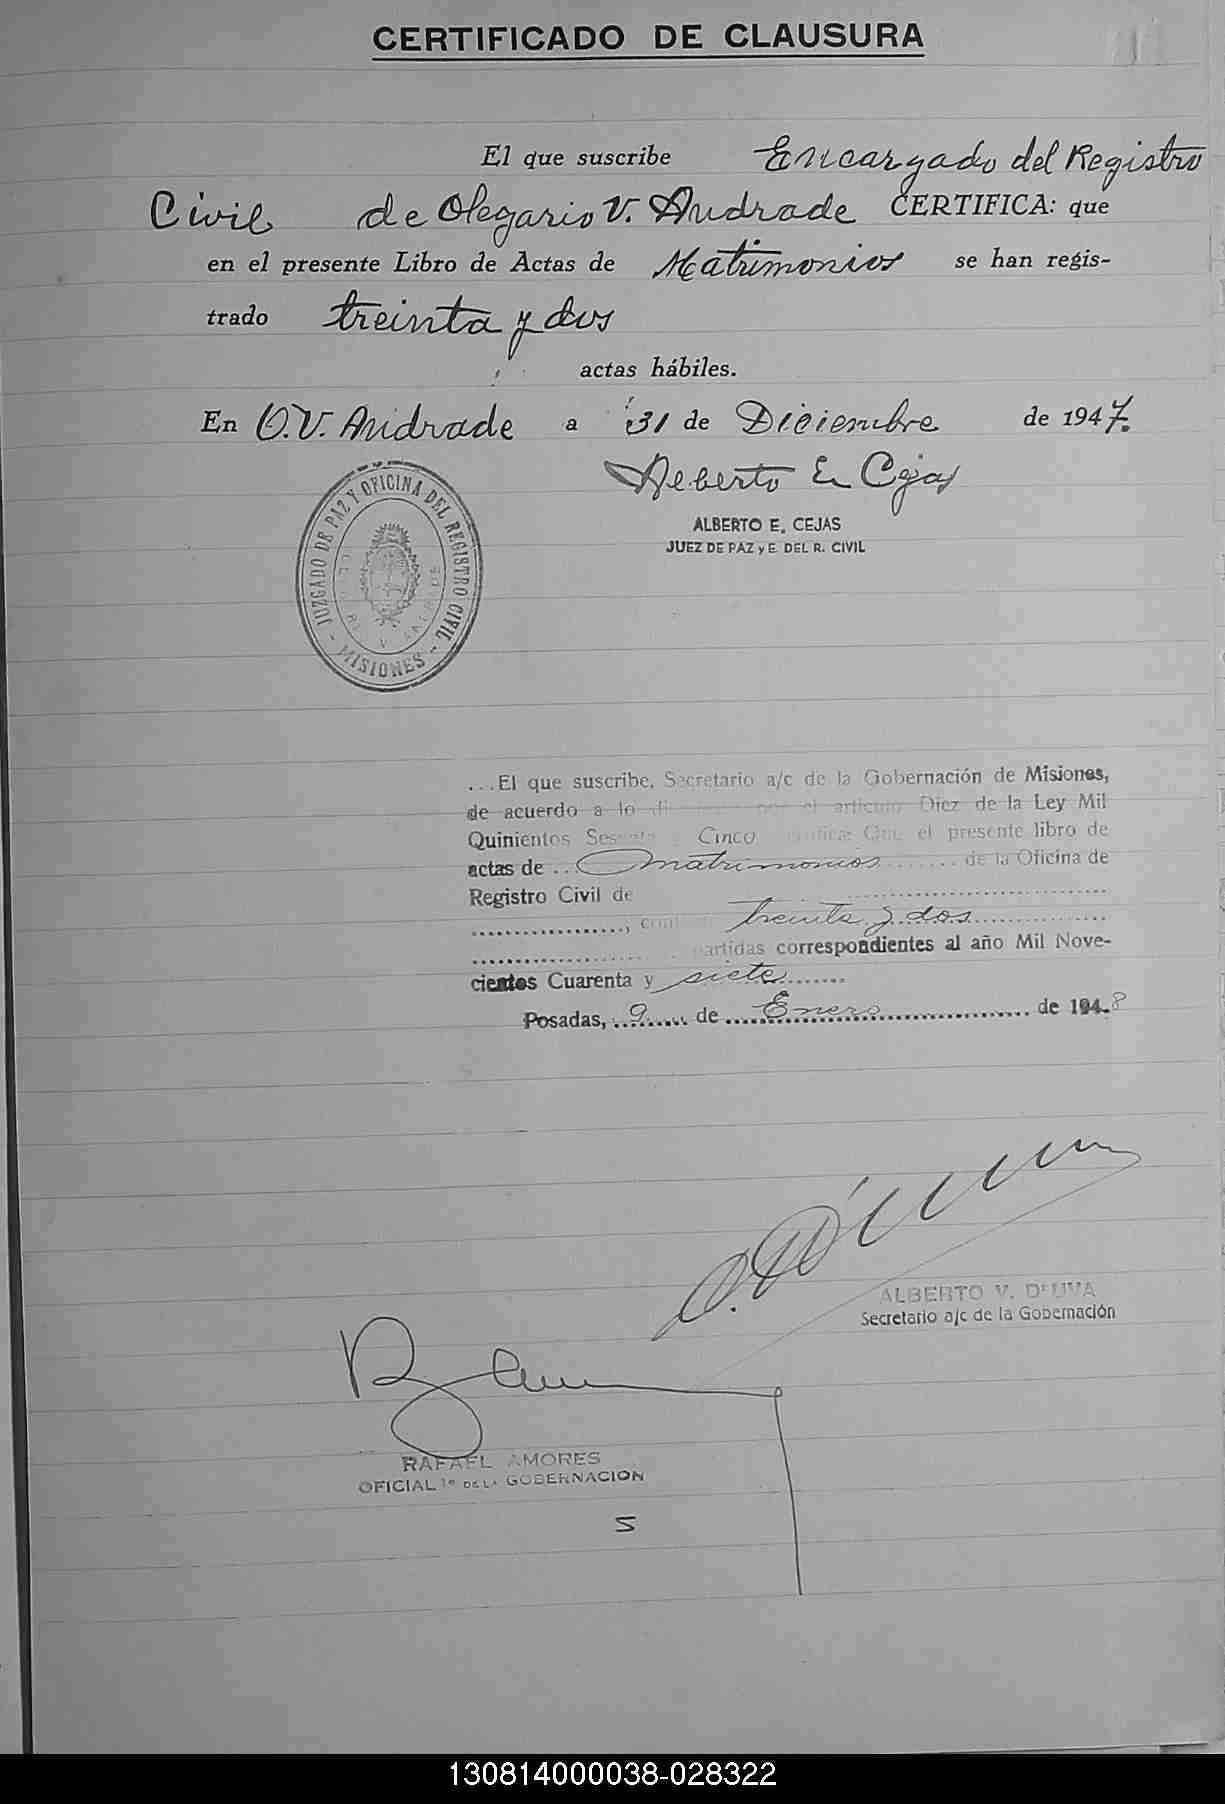 CERTIFICADO DE CLAUSURA
El que suscribe Encargado del Registro
Civil de Olegario V. Andrade CERTIFICA: que
en el presente Libro de Actas de Matrimonios se han regis-
trado treinta y dos
actas hábiles.
En O.V. Andrade a 31 de Diciembre de 1947.
Alberto E. Cejas
ALBERTO E. CEJAS
JUEZ DE PAZ y E. DEL R. CIVIL
JUZGADO DE PAZ Y OFICINA DEL REGISTRO CIVIL
- MISIONES -
...El que suscribe, Secretario a/c de la Gobernación de Misiones,
de acuerdo a lo por el artículo Diez de la Ley Mil
Quinientos Cinco el presente libro de
actas de ... Matrimonios ....... de la Oficina de
Registro Civil de
treinta y dos
partidas correspondientes al año Mil Nove-
cientos Cuarenta y siete
Posadas, 9 de Enero de 1948
ALBERTO V. D'UVA
Secretario a/c de la Gobernación
RAFAEL AMORES
OFICIAL 1º DE LA GOBERNACION
5
130814000038-028322